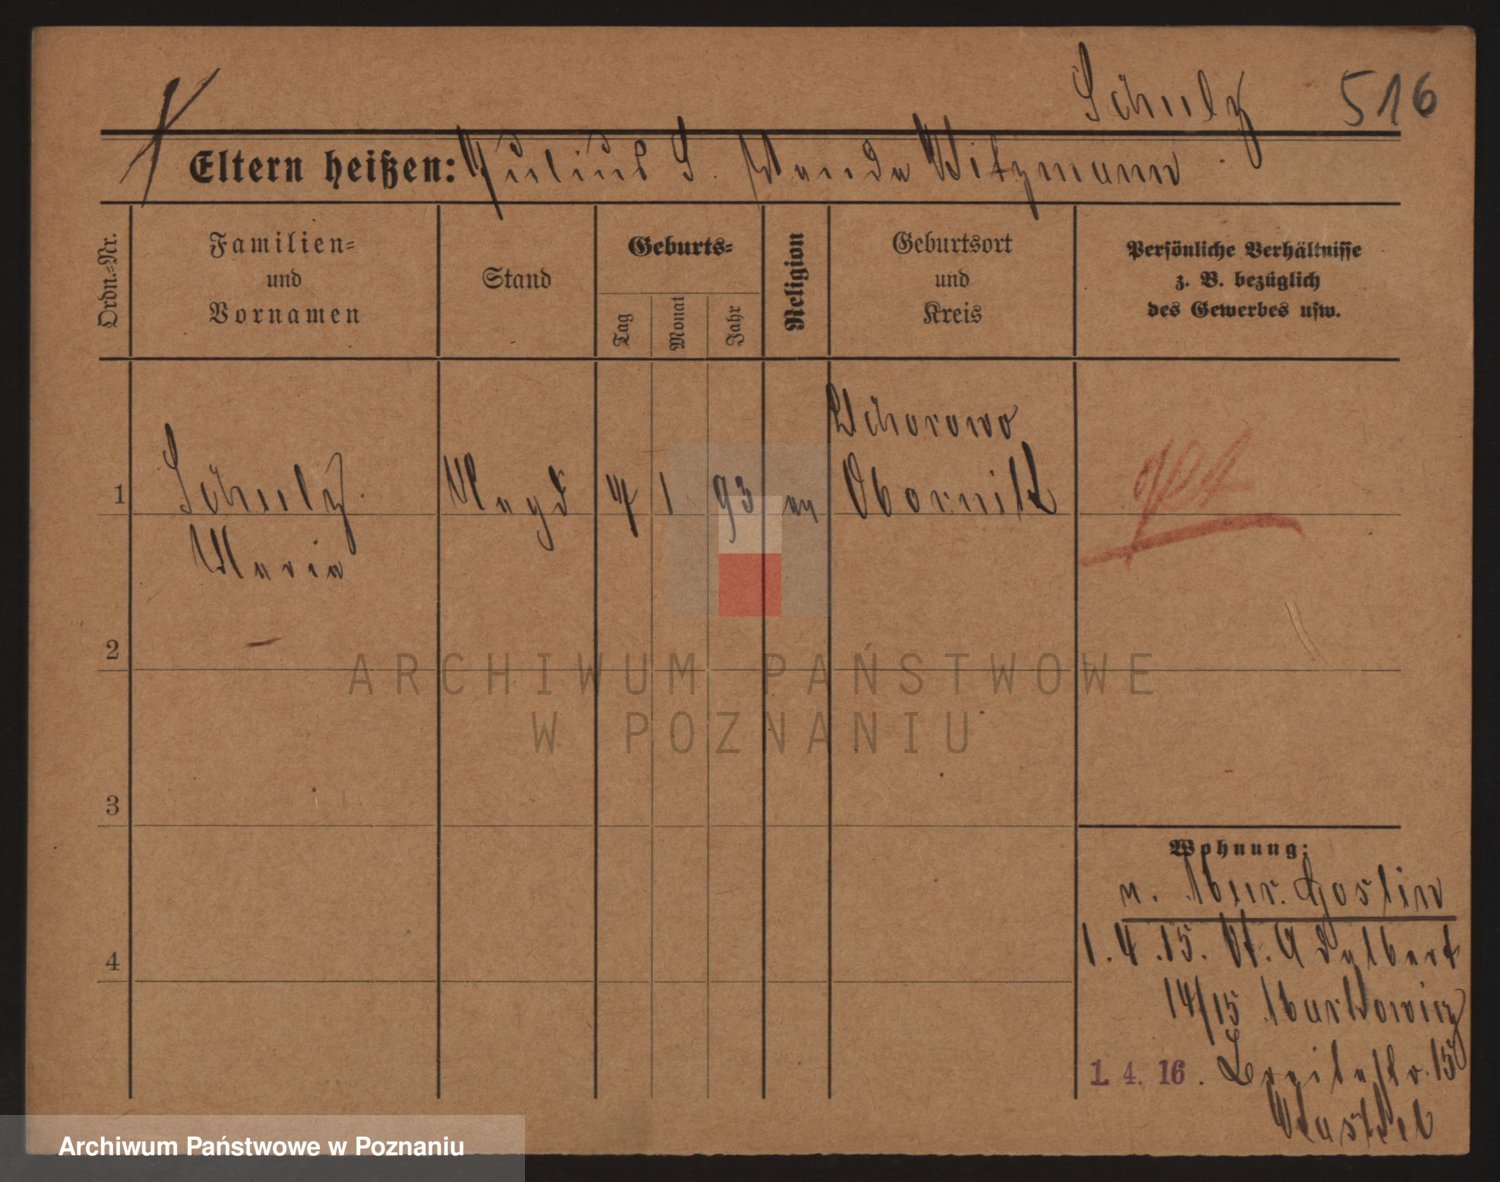 Schulz 516
Eltern heißen: Julius S. Wanda Witzmann
Ordn.-Nr.
Familien-
und
Vornamen
Stand
Geburts-
Tag
Monat
Jahr
Religion
Geburtsort
und
Kreis
Persönliche Verhältnisse
z. B. bezüglich
des Gewerbes usw.
Uchorowo
1 Schulz Magd 4 1 93 ev Obornik
Maria
2
3
4
Wohnung:
n. Mur. Goslin
1.4.15. St. Adalbert
14/15
1.4.16. Breitestr. 15
ARCHIWUM PAŃSTWOWE
W POZNANIU
Archiwum Państwowe w Poznaniu